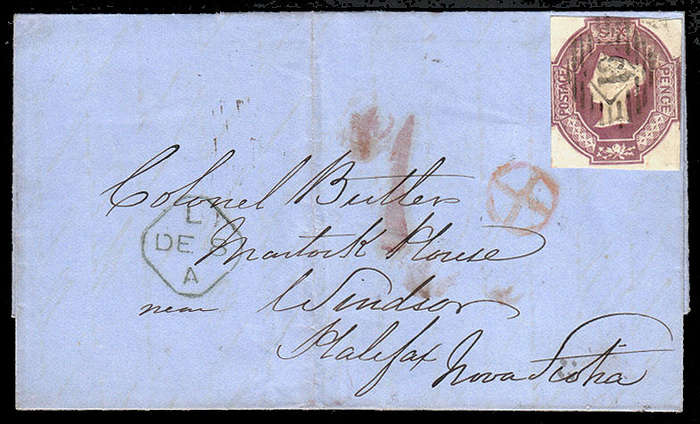 SIX
POSTAGE
PENCE
Colonel Butler
Martock House
near Windsor
Halifax Nova Scotia
L
DE 8
A
1